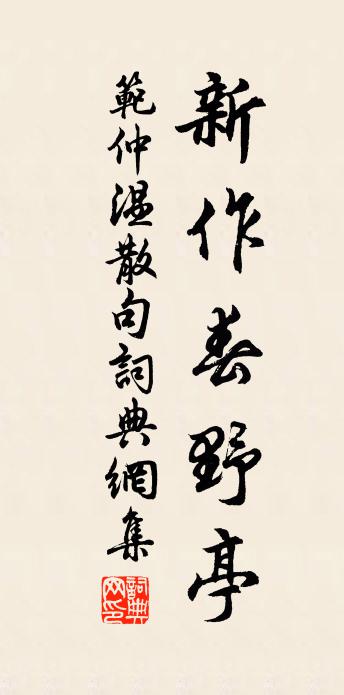 新作春野亭
範仲溫散句詞典網集
詞典網印